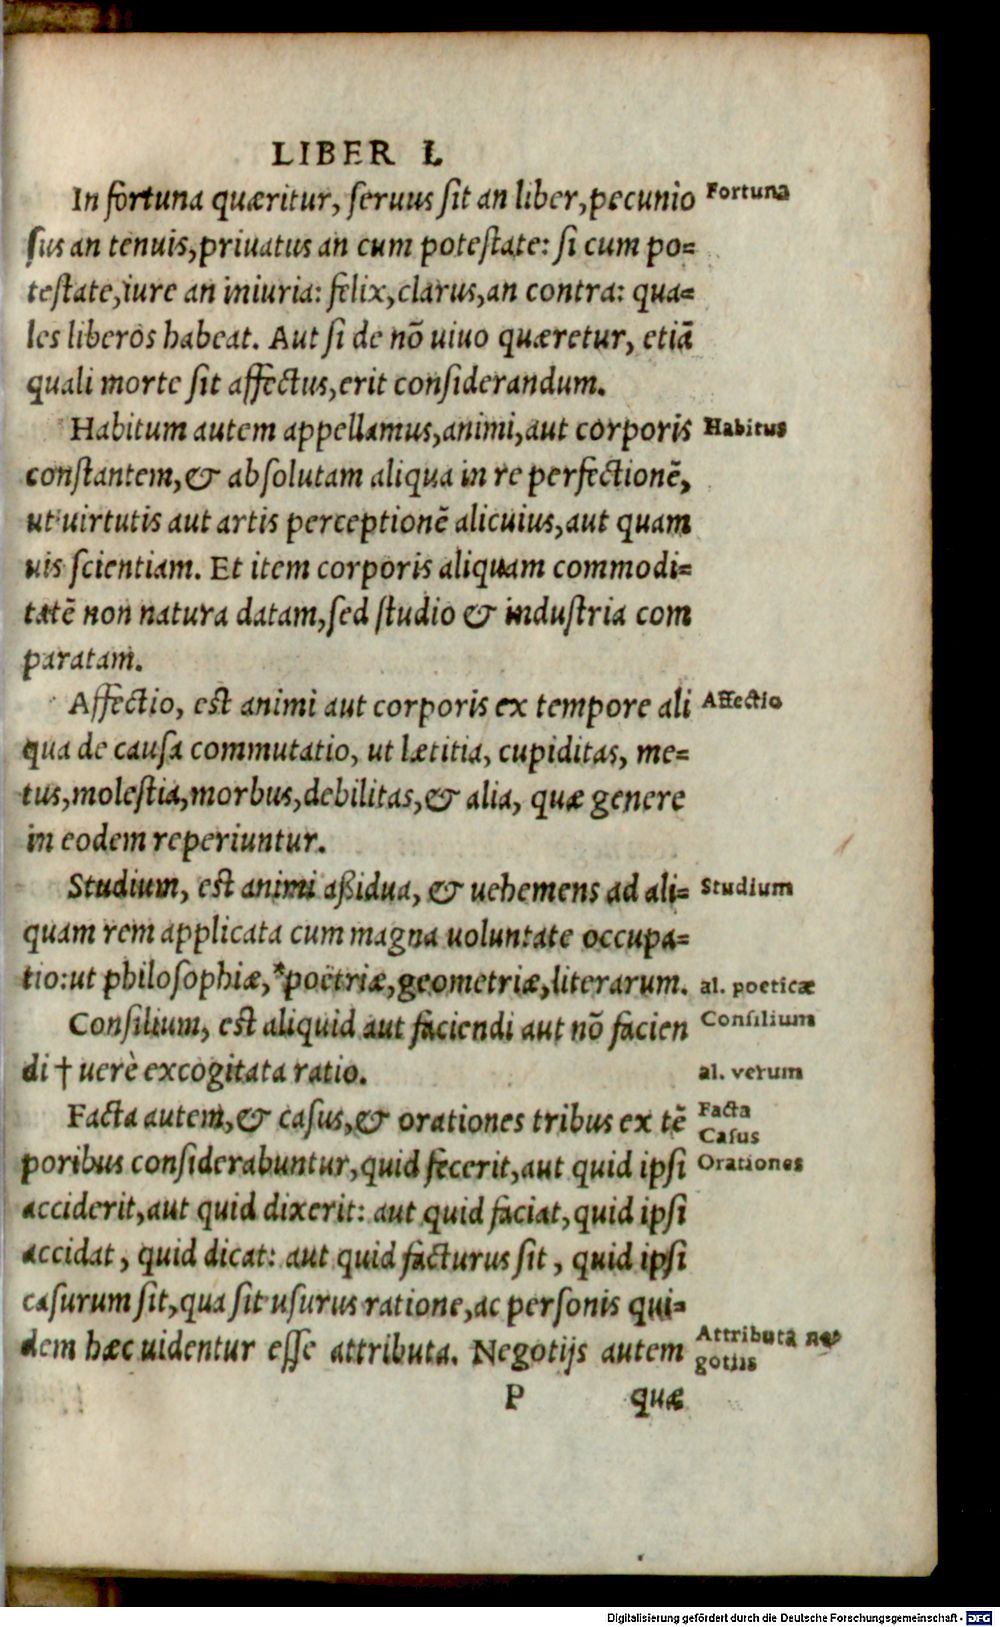 LIBER I.
In fortuna quæritur, seruus sit an liber, pecunio Fortuna
sus an tenuis, priuatus an cum potestate: si cum po=
testate, iure an iniuria: felix, clarus, an contra: qua=
les liberos habeat. Aut si de nõ uiuo quæretur, etiã
quali morte sit affectus, erit considerandum.
Habitum autem appellamus, animi, aut corporis Habitus
constantem, & absolutam aliqua in re perfectionẽ,
ut uirtutis aut artis perceptionẽ alicuius, aut quam
uis scientiam. Et item corporis aliquam commodi=
tatẽ non natura datam, sed studio & industria com
paratam.
Affectio, est animi aut corporis ex tempore ali Affectio
qua de causa commutatio, ut lætitia, cupiditas, me=
tus, molestia, morbus, debilitas, & alia, quæ genere
in eodem reperiuntur.
Studium, est animi aßidua, & uehemens ad ali= Studium
quam rem applicata cum magna uoluntate occupa=
tio: ut philosophiæ, *poëtriæ, geometriæ, literarum. al. poeticæ
Consilium, est aliquid aut faciendi aut nõ facien Consilium
di † uerè excogitata ratio. al. verum
Facta autem, & casus, & orationes tribus ex tẽ Facta
Casus
poribus considerabuntur, quid fecerit, aut quid ipsi Orationes
acciderit, aut quid dixerit: aut quid faciat, quid ipsi
accidat, quid dicat: aut quid facturus sit, quid ipsi
casurum sit, qua sit usurus ratione, ac personis qui=
dem hæc uidentur esse attributa. Negotijs autem Attributa ne=
gotiis
P quæ
Digitalisierung gefördert durch die Deutsche Forschungsgemeinschaft - DFG